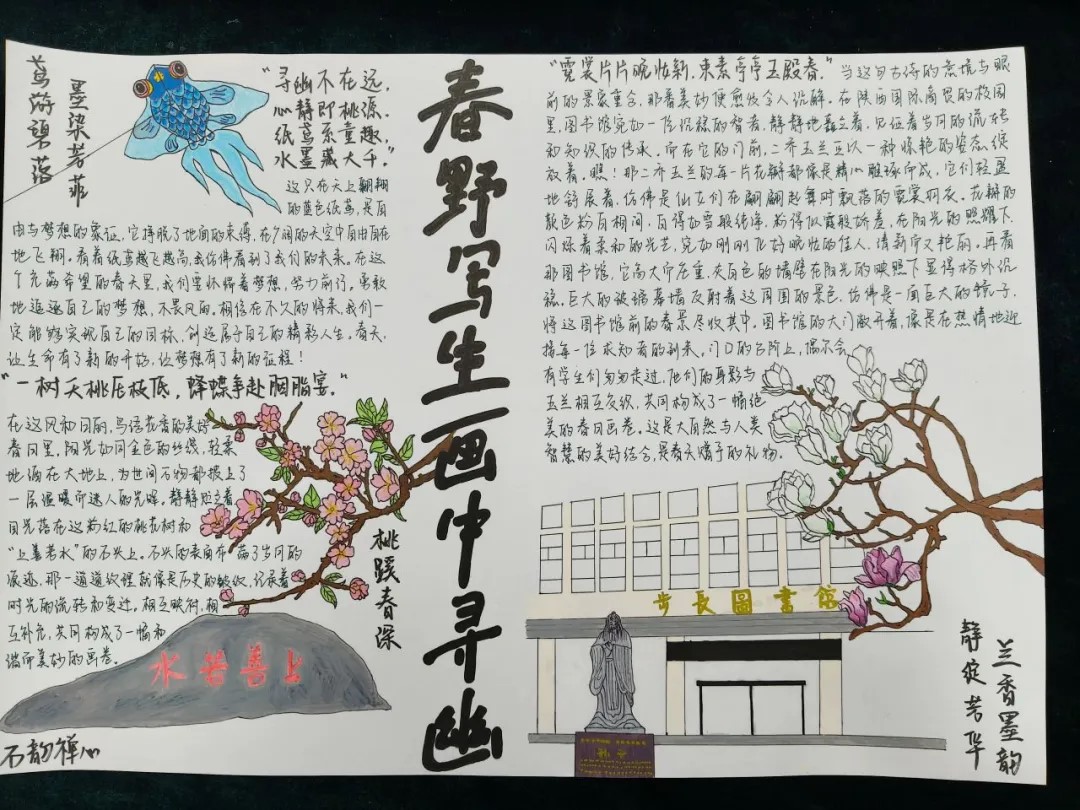 春野写生画中寻幽
鸢游碧落
墨染芳菲
"寻幽不在远,
心静即桃源。
纸鸢系童趣,
水墨藏大千。"
这只在天上翱翔
的蓝色纸鸢,是自
由与梦想的象征,它挣脱了地面的束缚,在广阔的天空中自由自在
地飞翔。看着纸鸢越飞越高,我仿佛看到了我们的未来。在这
个充满希望的春天里,我们要怀揣着梦想,努力前行,勇敢
地追逐自己的梦想,不畏风雨。相信在不久的将来,我们一
定能够实现自己的目标,创造属于自己的精彩人生。春天,
让生命有了新的开始,让梦想有了新的征程!
"一树夭桃压枝低,蜂蝶争赴胭脂宴。"
在这风和日丽,鸟语花香的美好
春日里,阳光如同金色的丝线,轻柔
地洒在大地上,为世间万物都披上了
一层温暖而迷人的光辉,静静
目光落在这粉红的桃花树和
"上善若水"的石头上。石头的表面布满了岁月的
痕迹,那一道道纹理就像是历史的皱纹,记录着
时光的流转和变迁。相互映衬,相
互补充,共同构成了一幅和
谐而美妙的画卷。
桃蹊春深
水若善上
石韵禅心
"霓裳片片晚妆新,束素亭亭玉殿春。"当这句古诗的意境与眼
前的景象重合,那着美妙便愈发令人沉醉。在陕西国际商贸的校园
里,图书馆宛如一位沉稳的智者,静静地矗立着,见证着岁月的流转
和知识的传承。而在它的门前,二乔玉兰正以一种惊艳的姿态绽
放着。瞧!那二乔玉兰的每一片花瓣都像是精心雕琢而成,它们轻盈
地舒展着,仿佛是仙女们在翩翩起舞时飘落的霓裳羽衣。花瓣的
颜色粉白相间,白得如雪般纯净,粉得似霞般娇羞,在阳光的照耀下,
闪烁着柔和的光芒,宛如刚刚化好晚妆的佳人,清新而又艳丽。再看
那图书馆,它高大而庄重,灰白色的墙壁在阳光的映照下显得格外沉
稳。巨大的玻璃幕墙反射着这周围的景色,仿佛是一面巨大的镜子,
将这图书馆前的春景尽收其中。图书馆的大门敞开着,像是在热情地迎
接每一位求知者的到来,门口的台阶上,偶尔会
有学生们匆匆走过,他们的身影与
玉兰相互交织,共同构成了一幅绝
美的春日画卷。这是大自然与人类
智慧的美好结合,是春天赠予的礼物。
步長圖書館
孔子
静绽芳华
兰香墨韵